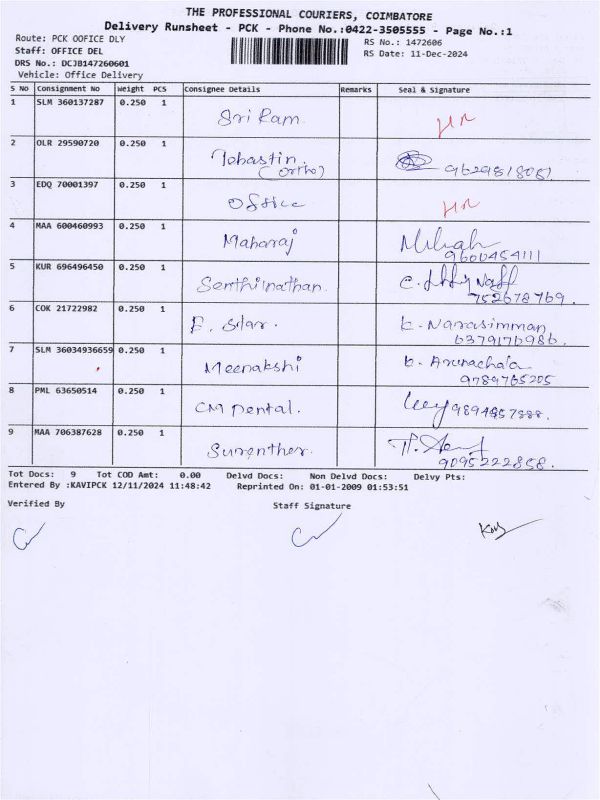 THE PROFESSIONAL COURIERS, COIMBATORE
Delivery Runsheet - PCK - Phone No.:0422-3505555 - Page No.:1
Route: PCK OOFICE DLY
RS No.: 1472606
Staff: OFFICE DEL
RS Date: 11-Dec-2024
DRS No.: DCJB147260601
Vehicle: Office Delivery
S No Consignment No Weight PCS Consignee Details Remarks Seal & Signature
1 SLM 360137287 0.250 1 Sri Ram
2 OLR 29590720 0.250 1 Tobastin
(ortho)
3 EDQ 70001397 0.250 1 Office
4 MAA 600460993 0.250 1 Maharaj
9600454111
5 KUR 696496450 0.250 1 Senthilnathan
752678769.
6 COK 21722982 0.250 1 E. Silar. K. Narasimman
6379176986.
7 SLM 36034936659 0.250 1 Meenakshi K. Arunachala
9789765205
8 PML 63650514 0.250 1 CM Dental. 9894957888.
9 MAA 706387628 0.250 1 Surenther.
9095222858.
Tot Docs: 9 Tot COD Amt: 0.00 Delvd Docs: Non Delvd Docs: Delvy Pts:
Entered By :KAVIPCK 12/11/2024 11:48:42 Reprinted On: 01-01-2009 01:53:51
Verified By Staff Signature